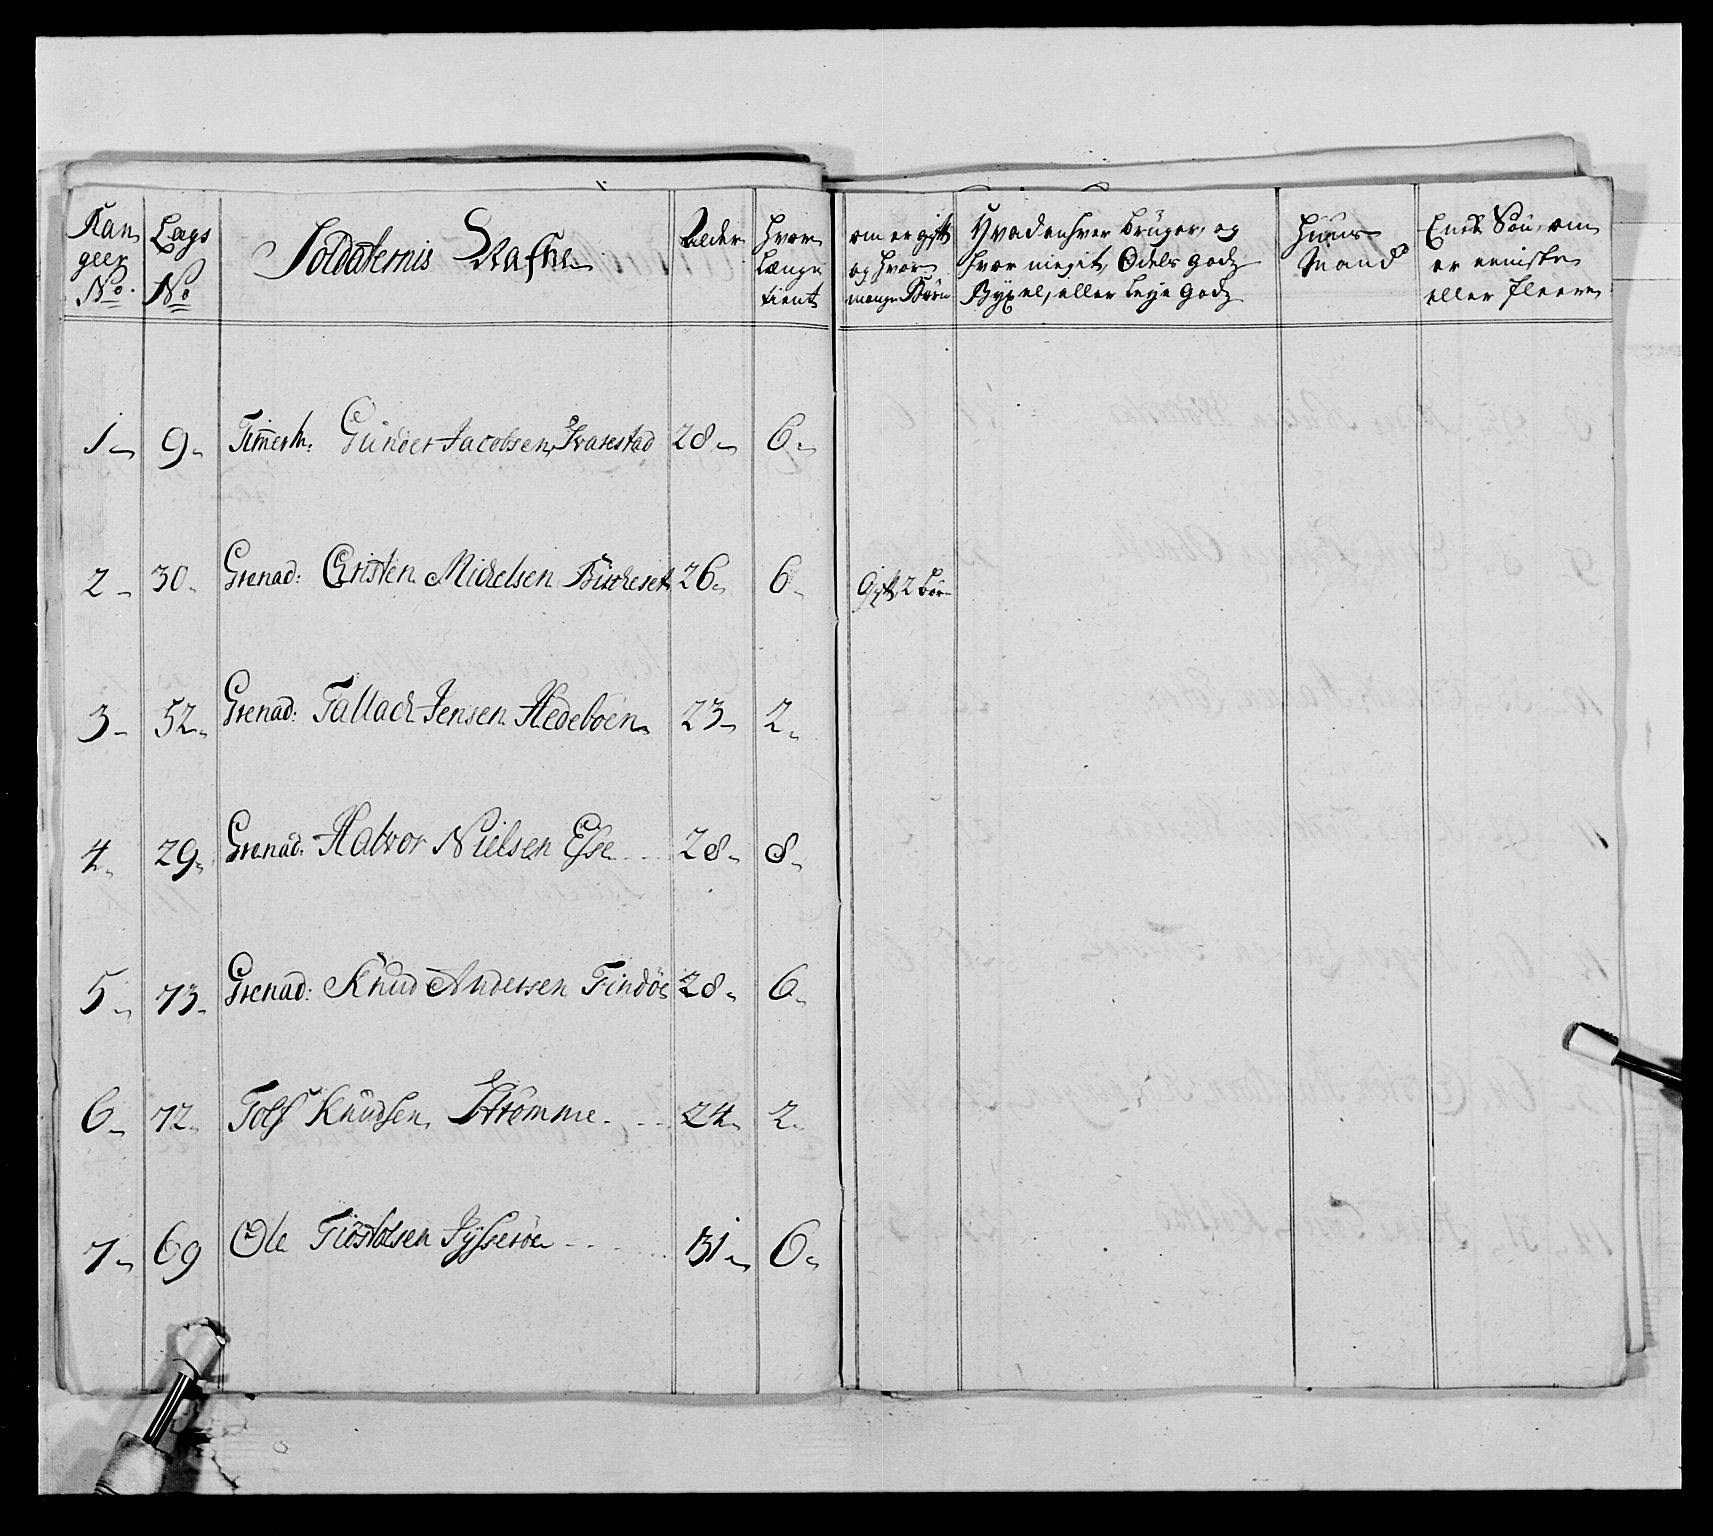 Ran
geer
No.
Lægs
No
Soldaternis Nafne
Alder
Hvor
Længe
tient
om er gift
og hvor
mange Børn
Hvad enhver bruger, og
hvor megit Odels godz
Byxel, eller Leje godz
Huus
Mand
Eeneste Søn, om
er eeniste
eller fleere
1 9 Timerm: Gunder Jacobsen Ivarestad 28 6
2 30 Grenad: Cristen Michelsen 26 6 Gift 2 børn
3 52 Grenad: Tallach Jensen Hedeboen 23 2
4 29 Grenad: Halvor Nielsen Esse 28 8
5 73 Grenad: Knud Andersen Findøe 28 6
6 72 Tolf Knudsen Strømme 24 2
7 69 Ole Tiøstolsen 31 6